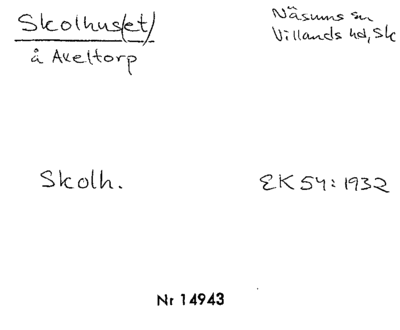 Skolhus(et)
å Axeltorp
Näsums sn
Villands hd, Sk
Skolh.
EK 54:1932
Nr 14943